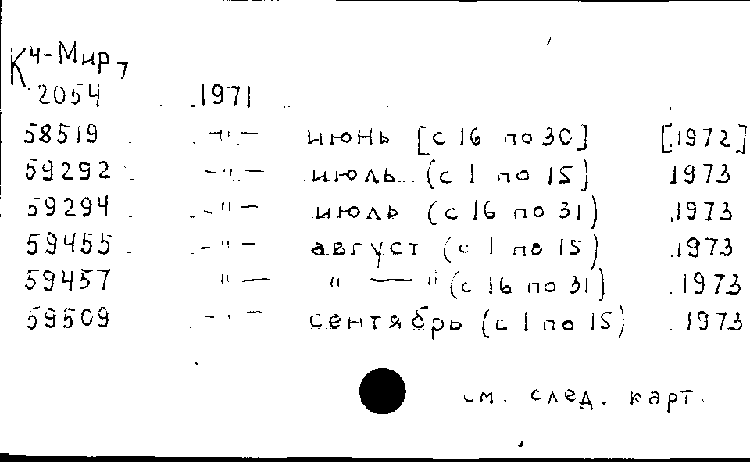 К Ч-Мир 7
2054 1971
58519 -"- июнь [с 16 по 30] [1972]
59292 -"- июль (с 1 по 15) 1973
59294 -"- июль (с 16 по 31) 1973
59455 -"- август (с 1 по 15) 1973
59457 " — " — " (с 16 по 31) 1973
59509 -"- сентябрь (с 1 по 15) 1973
см. след. карт.